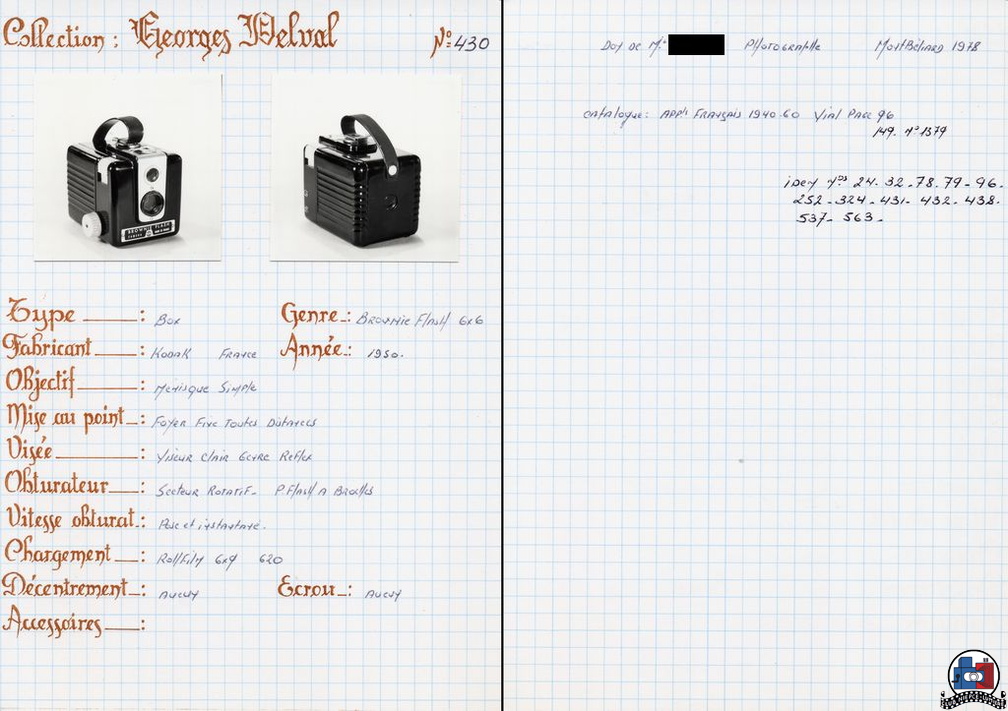 Collection : Georges Delval N° 430
BROWNIE FLASH
CAMERA
Type : Box
Genre : Brownie Flash 6x6
Fabricant : Kodak France
Année : 1950.
Objectif : Menisque Simple
Mise au point : Foyer Fixe Toutes Distances
Visée : Viseur Clair Genre Reflex
Obturateur : Secteur Rotatif - P. Flash A Broches
Vitesse obturat. : Pose et instantané.
Chargement : Rollfilm 6x9 620
Décentrement : Aucun
Ecrou : Aucun
Accessoires :
Don de Mr Photographe Montbeliard 1978
catalogue : Appls Français 1940-60 Vial Page 96
149. n° 1379
idem nos 24. 32 - 78. 79 - 96.
252 - 324 - 431 - 432 - 438.
537 - 563 -